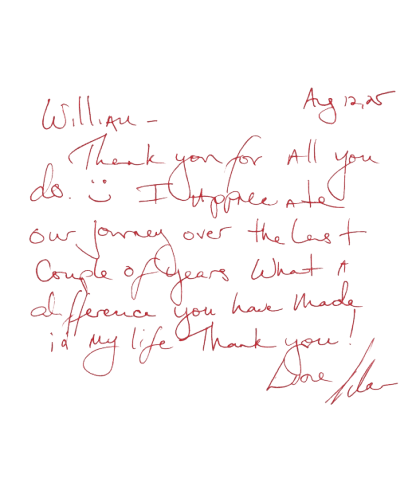 Aug 12, 25
William -
Thank you for All you
do. :) I Appreciate
our journey over the Last
Couple of years What A
difference you have made
in My life Thank you!